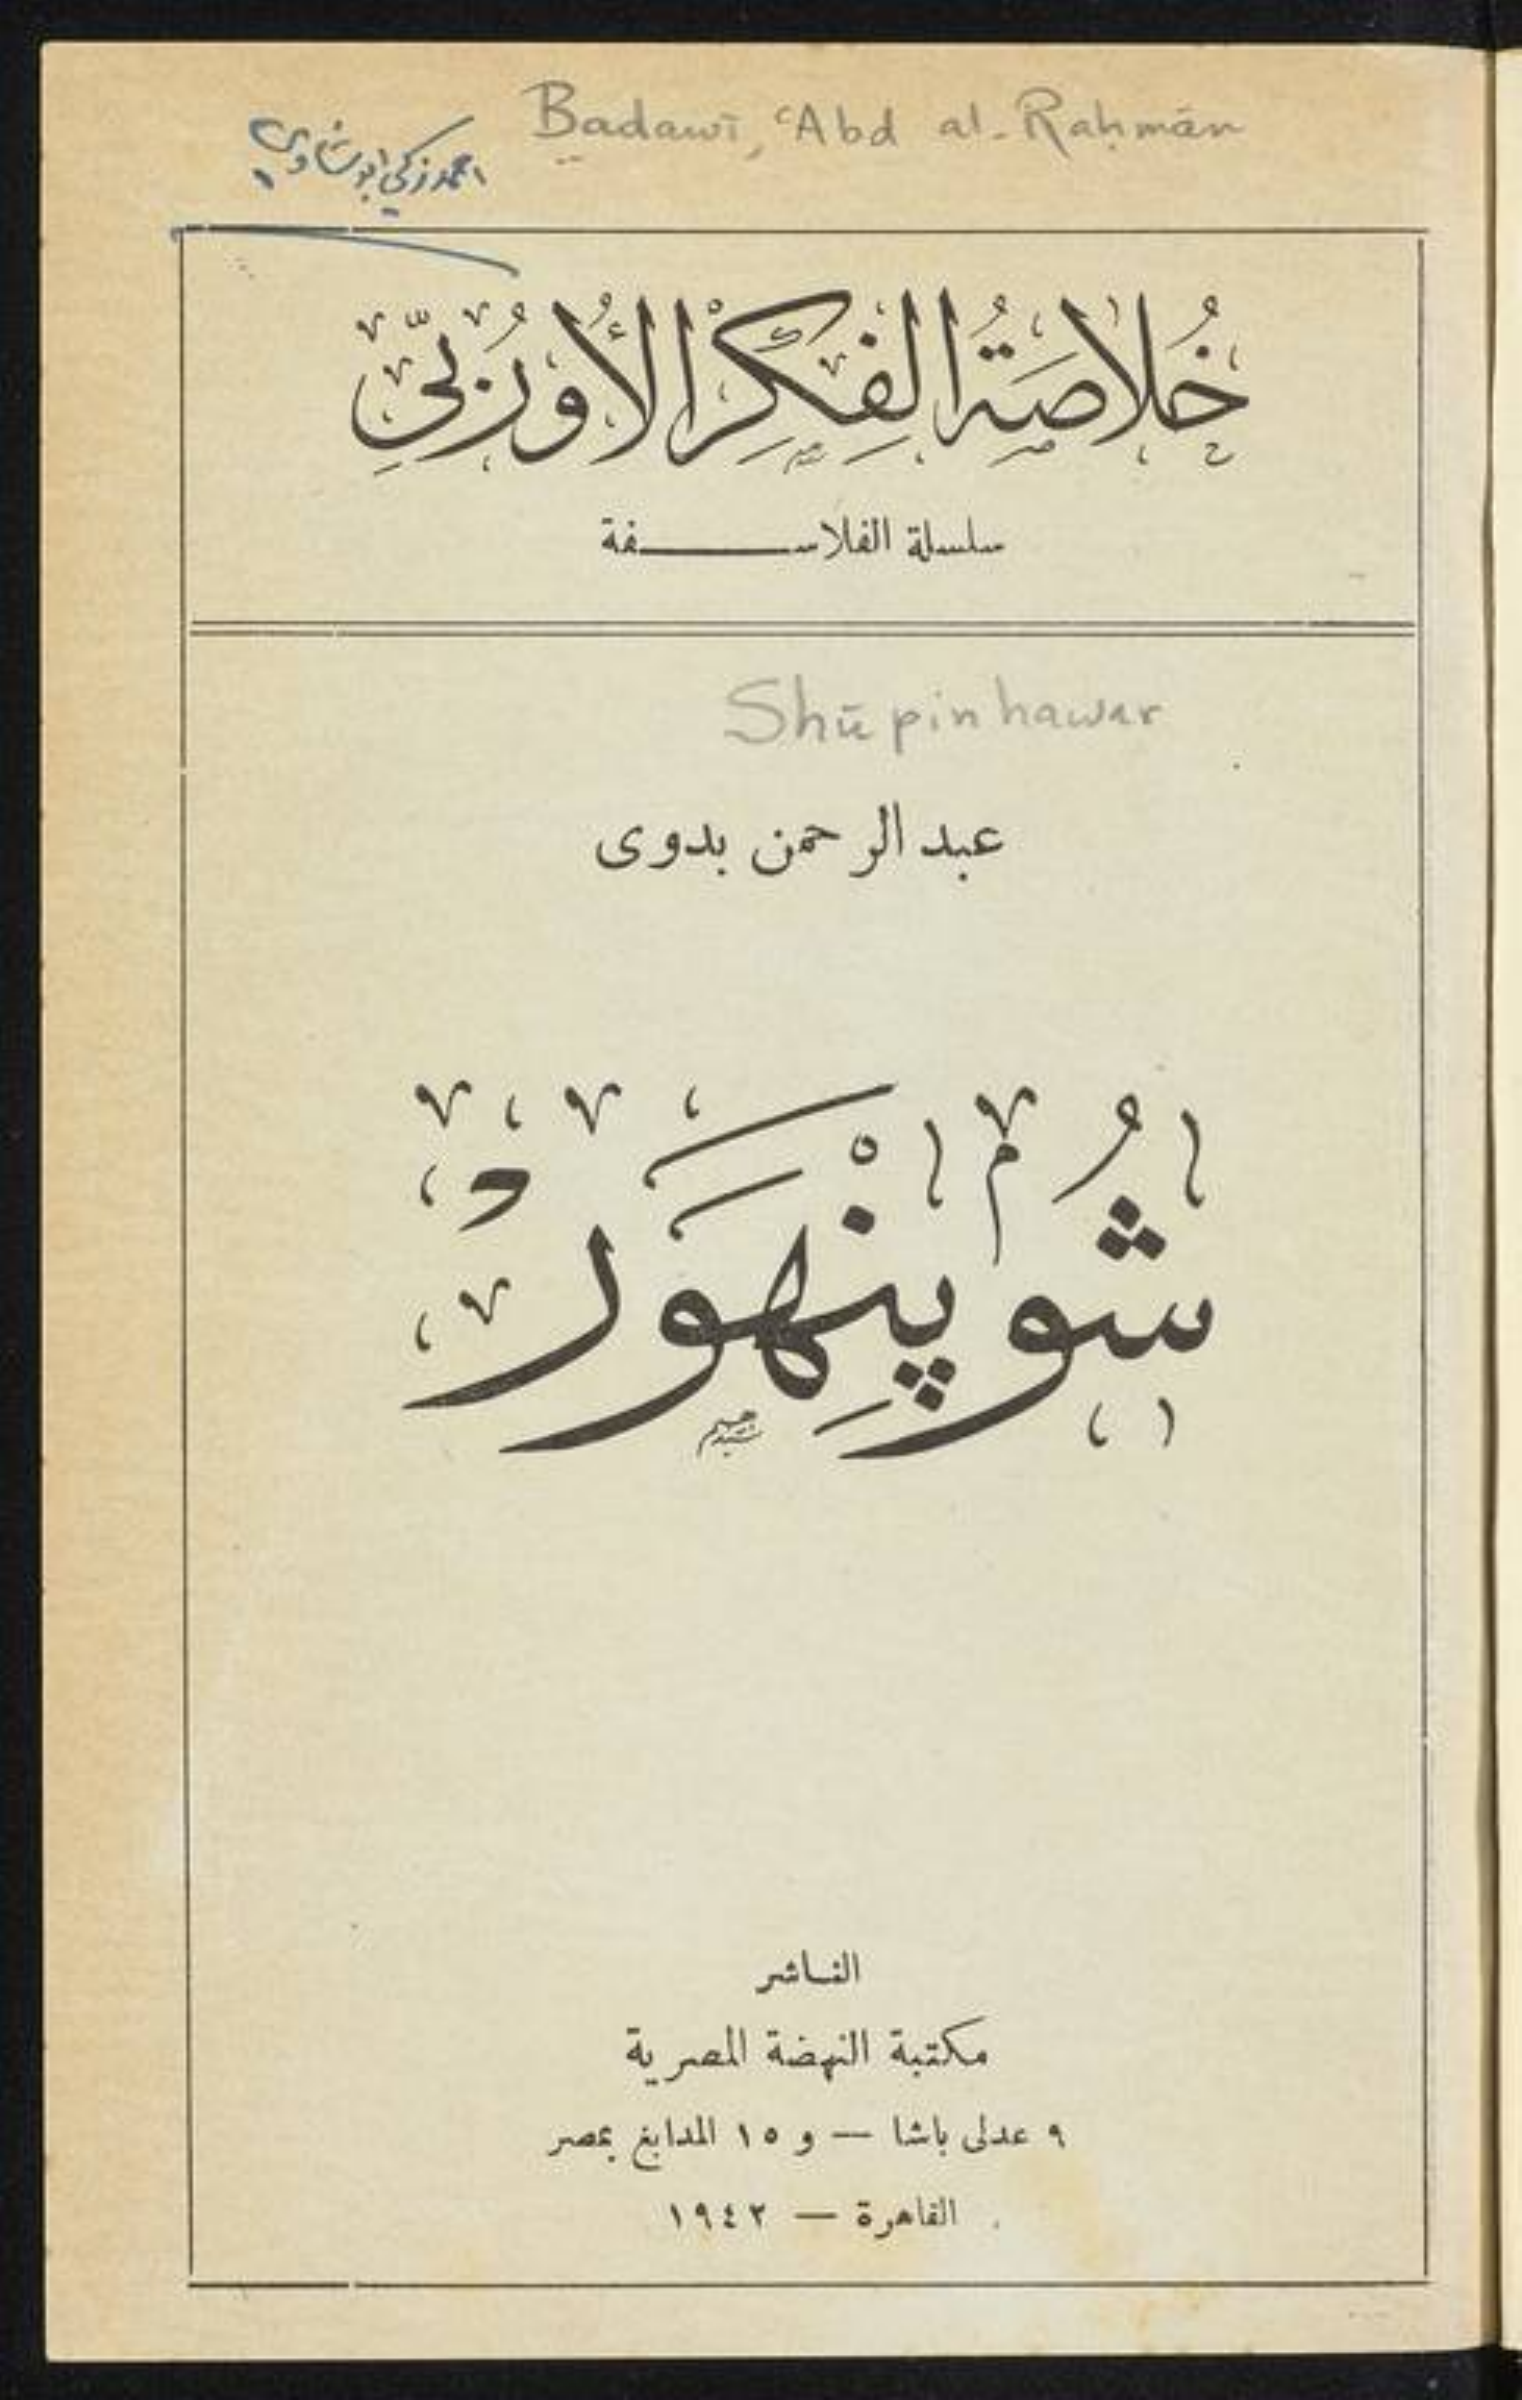 Badawī, ʿAbd al-Raḥmān
احمد زكي ابو شادي
خُلاصَةُ الفِكْرِ الأُورُبِّيِّ
سلسلة الفلاسفة
Shūpinhawar
عبد الرحمن بدوى
شُوپِنْهَوَرْ
الناشر
مكتبة النهضة المصرية
٩ عدلى باشا — و ١٥ المدابغ بمصر
القاهرة — ١٩٤٢